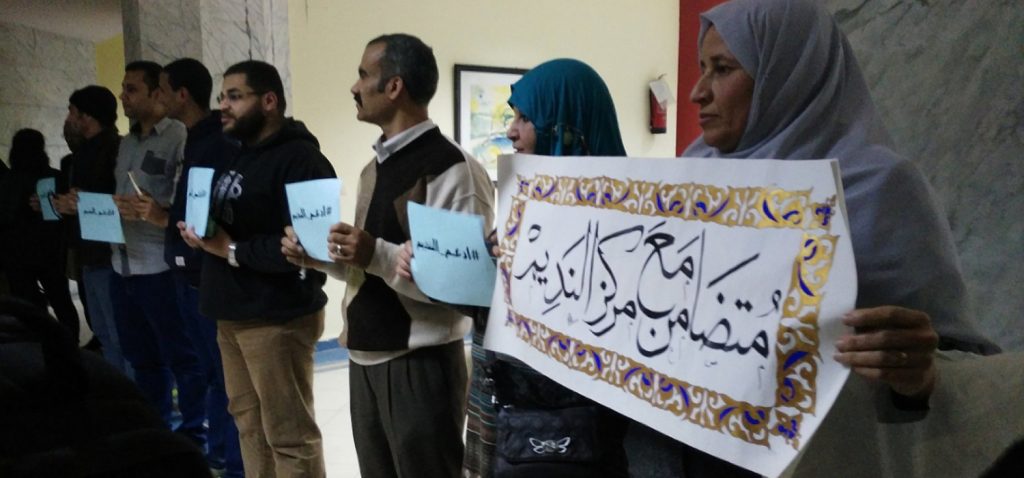 مُتضَامن مَعَ مركز النَدِيم
#ادعم_النديم
#ادعم_النديم
#ادعم_النديم